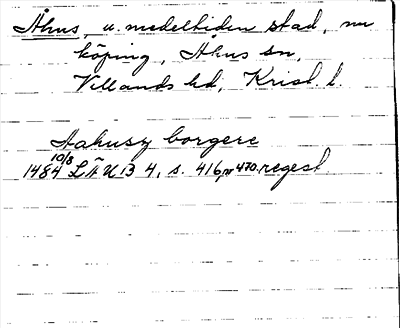 Åhus, u. medeltiden stad, nu
köping, Åhus sn,
Villands hd, Krist. l.
Aahusz borgere
1484 10/8 LÄU 13 4, s. 416, nr 470. regest